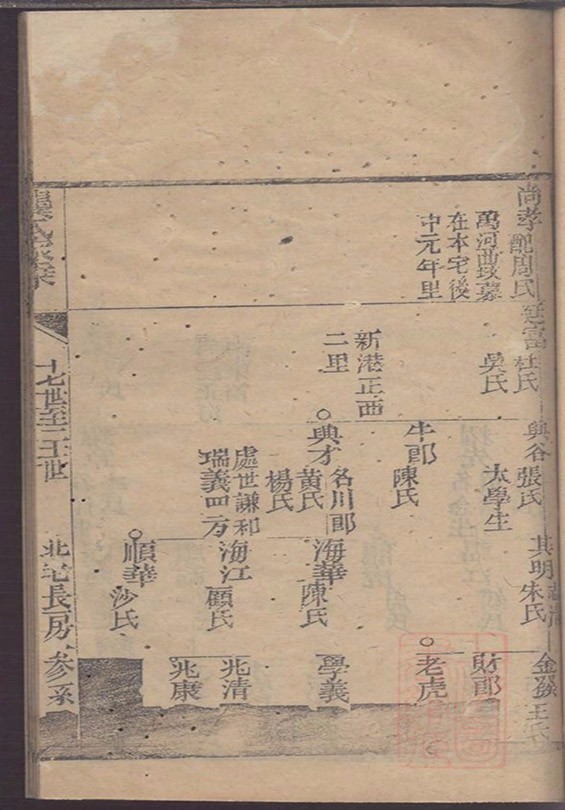 尚孝配周氏
萬河曲坟墓
在本宅後
中元年里
廷富杜氏
吳氏
新港正西
二里
與谷張氏
太學生
牛郎陳氏
典才
名川郎
黄氏
楊氏
處世謙和
瑞義四方
其明
朱氏
海華陳氏
海江顧氏
順華沙氏
金發王氏
財郎
老虎
學義
兆清
兆康
十七世至二十一世
北宅長房
参系